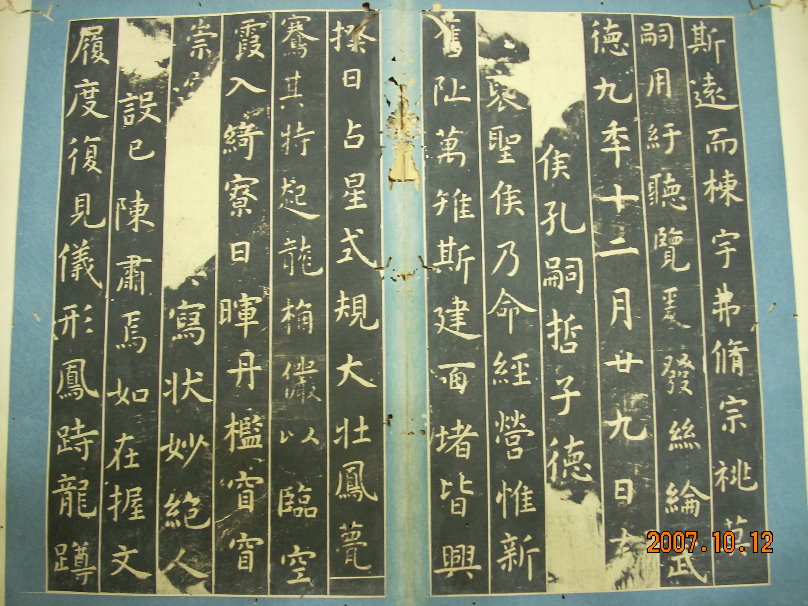 斯遠而棟宇弗脩宗祧莫
嗣用紆聽覽爰發絲綸武
德九秊十二月廿九日有
侯孔嗣哲子德
褒聖侯乃命經營惟新
舊阯萬雉斯建百堵皆興
揆日占星式規大壯鳳甍
騫其特起龍桷儼以臨空
霞入綺寮日暉丹檻窅窅
崇寫狀妙絕人
設已陳肅焉如在握文
履度復見儀形鳳跱龍蹲
2007.10.12